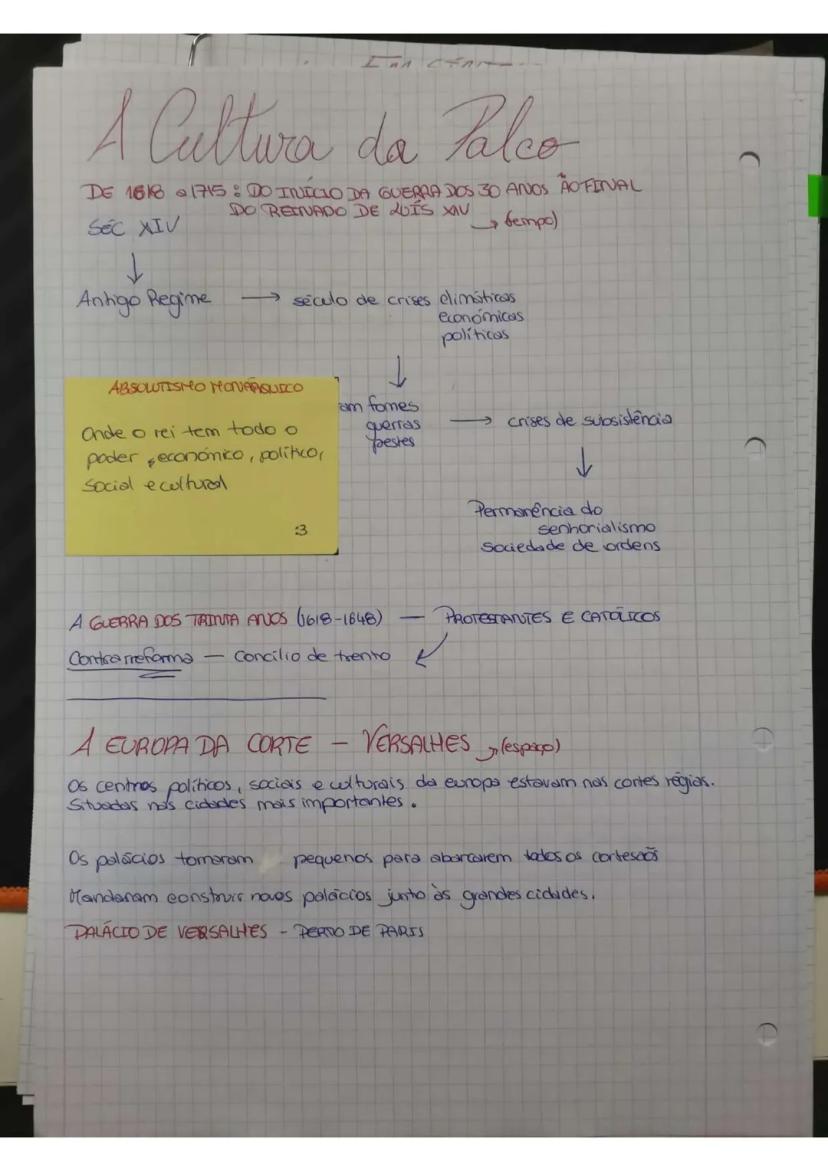 A Cultura da Palco
DE 1618 a 1715 : DO INÍCIO DA GUERRA DOS 30 ANOS ÃO FINAL
DO REINADO DE LUÍS XIV
→ tempo)
SÉC XIV
↓
Antigo Regime → século de crises climáticas
económicas
políticas
↓
ABSOLUTISMO MONÁRQUICO
Onde o rei tem todo o
poder, económico, político,
social e cultural
:3
am fomes
guerras
pestes
→ crises de subsistência
↓
Permanência do
senhorialismo
sociedade de ordens
A GUERRA DOS TRINTA ANOS (1618-1648) — PROTESTANTES E CATÓLICOS
Contrarreforma — Concílio de trento ↙
A EUROPA DA CORTE - VERSALHES → (espaço)
Os centros políticos, sociais e culturais da europa estavam nas cortes régias.
Situadas nas cidades mais importantes.
Os palácios tornaram pequenos para abarcarem todos os cortesãos
Mandaram construir novos palácios junto às grandes cidades.
PALÁCIO DE VERSALHES - PERTO DE PARIS